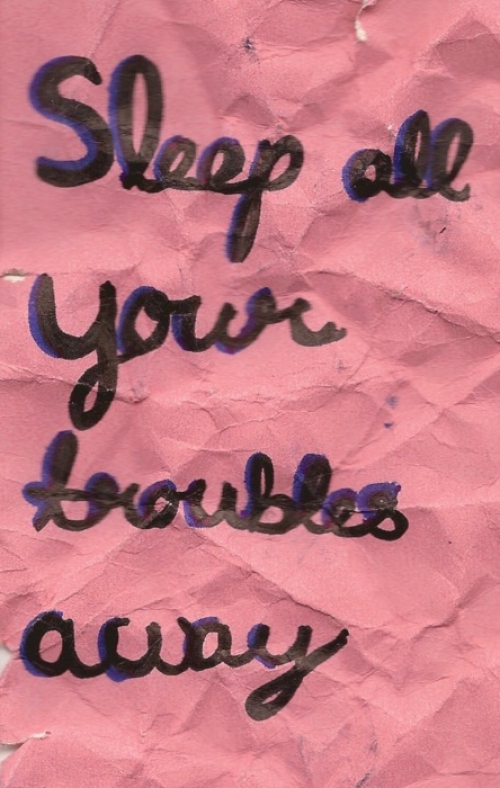 Sleep all
your
troubles
away